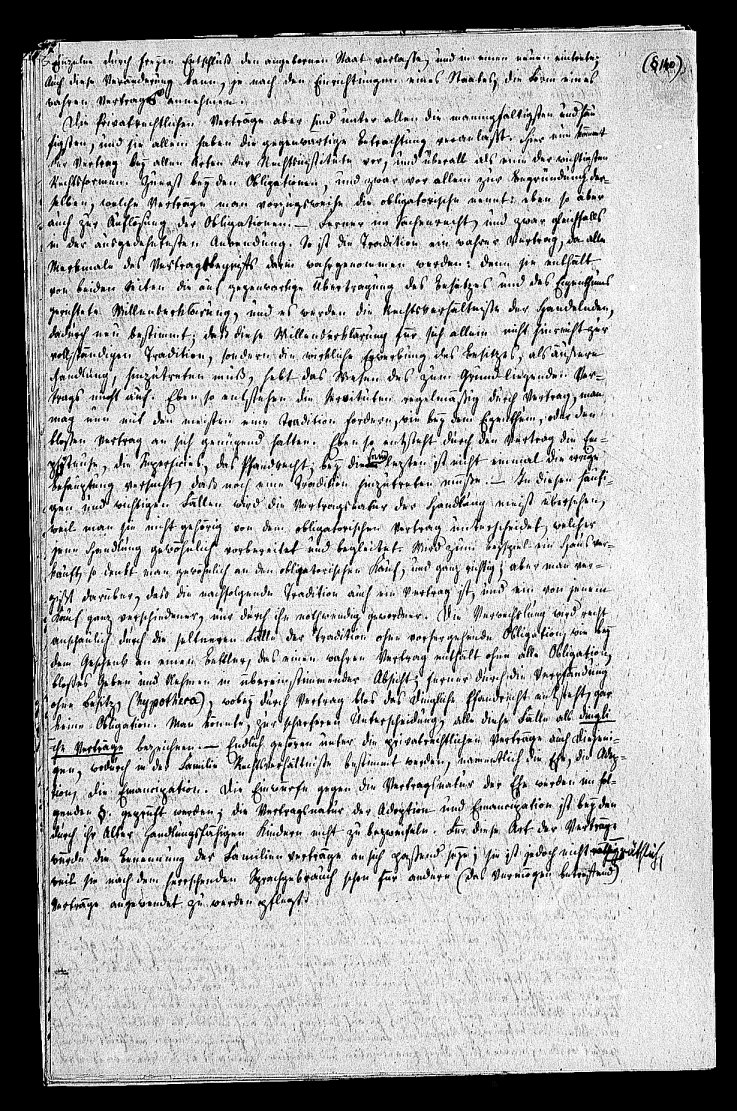 (§ 140)
Einzelne durch freyen Entschluß den angebornen Staat verlasse, und in einen neuen eintrete;
auch diese Veränderung kann, je nach den Einrichtungen eines Staates, die Form eines
wahren Vertrags annehmen.
Die privatrechtlichen Verträge aber sind unter allen die mannigfaltigsten und häu-
figsten, und sie allein haben die gegenwärtige Betrachtung veranlaßt. Hier nun kommt
der Vertrag bey allen Arten der Rechtsinstitute vor, und überall als eine der wichtigsten
Rechtsformen. Zuerst bey den Obligationen, und zwar vor allem zur Begründung der-
selben, welche Verträge man vorzugsweise die obligatorische nennt: eben so aber
auch zur Auflösung der Obligationen. — Ferner im Sachenrecht, und zwar gleichfalls
in der ausgedehntesten Anwendung. So ist die Tradition ein wahrer Vertrag, da alle
Merkmale des Vertragsbegriffs darin wahrgenommen werden: denn sie enthält
von beiden Seiten die auf gegenwärtige Übertragung des Besitzes und des Eigenthums
gerichtete Willenserklärung, und es werden die Rechtsverhältnisse der Handelnden
dadurch neu bestimmt; daß diese Willenserklärung für sich allein nicht hinreicht zur
vollständigen Tradition, sondern die wirkliche Erwerbung des Besitzes, als äußere
Handlung, hinzutreten muß, hebt das Wesen des zum Grund liegenden Ver-
trags nicht auf. Eben so entstehen die Servituten regelmäßig durch Vertrag, man
mag nun mit den meisten eine Tradition fordern, wie bey dem Eigenthum, oder den
bloßen Vertrag an sich genügend halten. Eben so entsteht durch den Vertrag die Em-
phyteuse, die Superficies, das Pfandrecht; bey diesem letzten ist nicht einmal die irrige
Behauptung versucht, daß noch eine Tradition hinzutreten müsse. — In diesen häufi-
gen und wichtigen Fällen wird die Vertragsnatur der Handlung meist übersehen,
weil man sie nicht gehörig von dem obligatorischen Vertrag unterscheidet, welcher
jene Handlung gewöhnlich vorbereitet und begleitet. Wird zum Beyspiel ein Haus ver-
kauft, so denkt man gewöhnlich an den obligatorischen Kauf, und ganz richtig; aber man ver-
gißt darüber, daß die nachfolgende Tradition auch ein Vertrag ist, und ein von jenem
Kauf ganz verschiedener, nur durch ihn nothwendig gewordener. Die Verwechslung wird recht
anschaulich durch die seltneren Fälle der Tradition ohne vorhergehende Obligation, wie bey
dem Geschenk an einen Bettler, das einen wahren Vertrag enthält ohne alle Obligation,
bloßes Geben und Nehmen in übereinstimmender Absicht; ferner durch die Verpfändung
ohne Besitz, (hypotheca), wobey durch Vertrag blos das dingliche Pfandrecht entsteht, gar
keine Obligation. Man könnte, zur schärferen Unterscheidung, alle diese Fälle als dingli-
che Verträge bezeichnen. — Endlich gehören unter die privatrechtlichen Verträge auch diejeni-
gen, wodurch in der Familie Rechtsverhältnisse bestimmt werden, namentlich die Ehe, die Adop-
tion, die Emancipation. Die Einwürfe gegen die Vertragsnatur der Ehe werden im fol-
genden §. geprüft werden; die Vertragsnatur der Adoption und Emancipation ist bey den
durch ihr Alter handlungsfähigen Kindern nicht zu bezweifeln. Für diese Art der Verträge
würde die Benennung der Familienverträge an sich passend seyn; sie ist jedoch nicht räthlich,
weil sie nach dem herrschenden Sprachgebrauch schon für andere (das Vermögen betreffend)
Verträge angewendet zu werden pflegt.